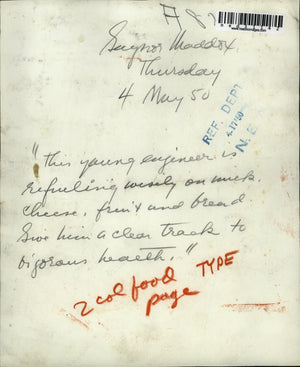 A 8
Gaynor Maddox
Thursday
4 May 50
REF. DEPT
N. E.
"This young engineer is
refueling wisely on milk.
cheese, fruit and bread
Give him a clear track to
vigorous health."
2 col food TYPE
page